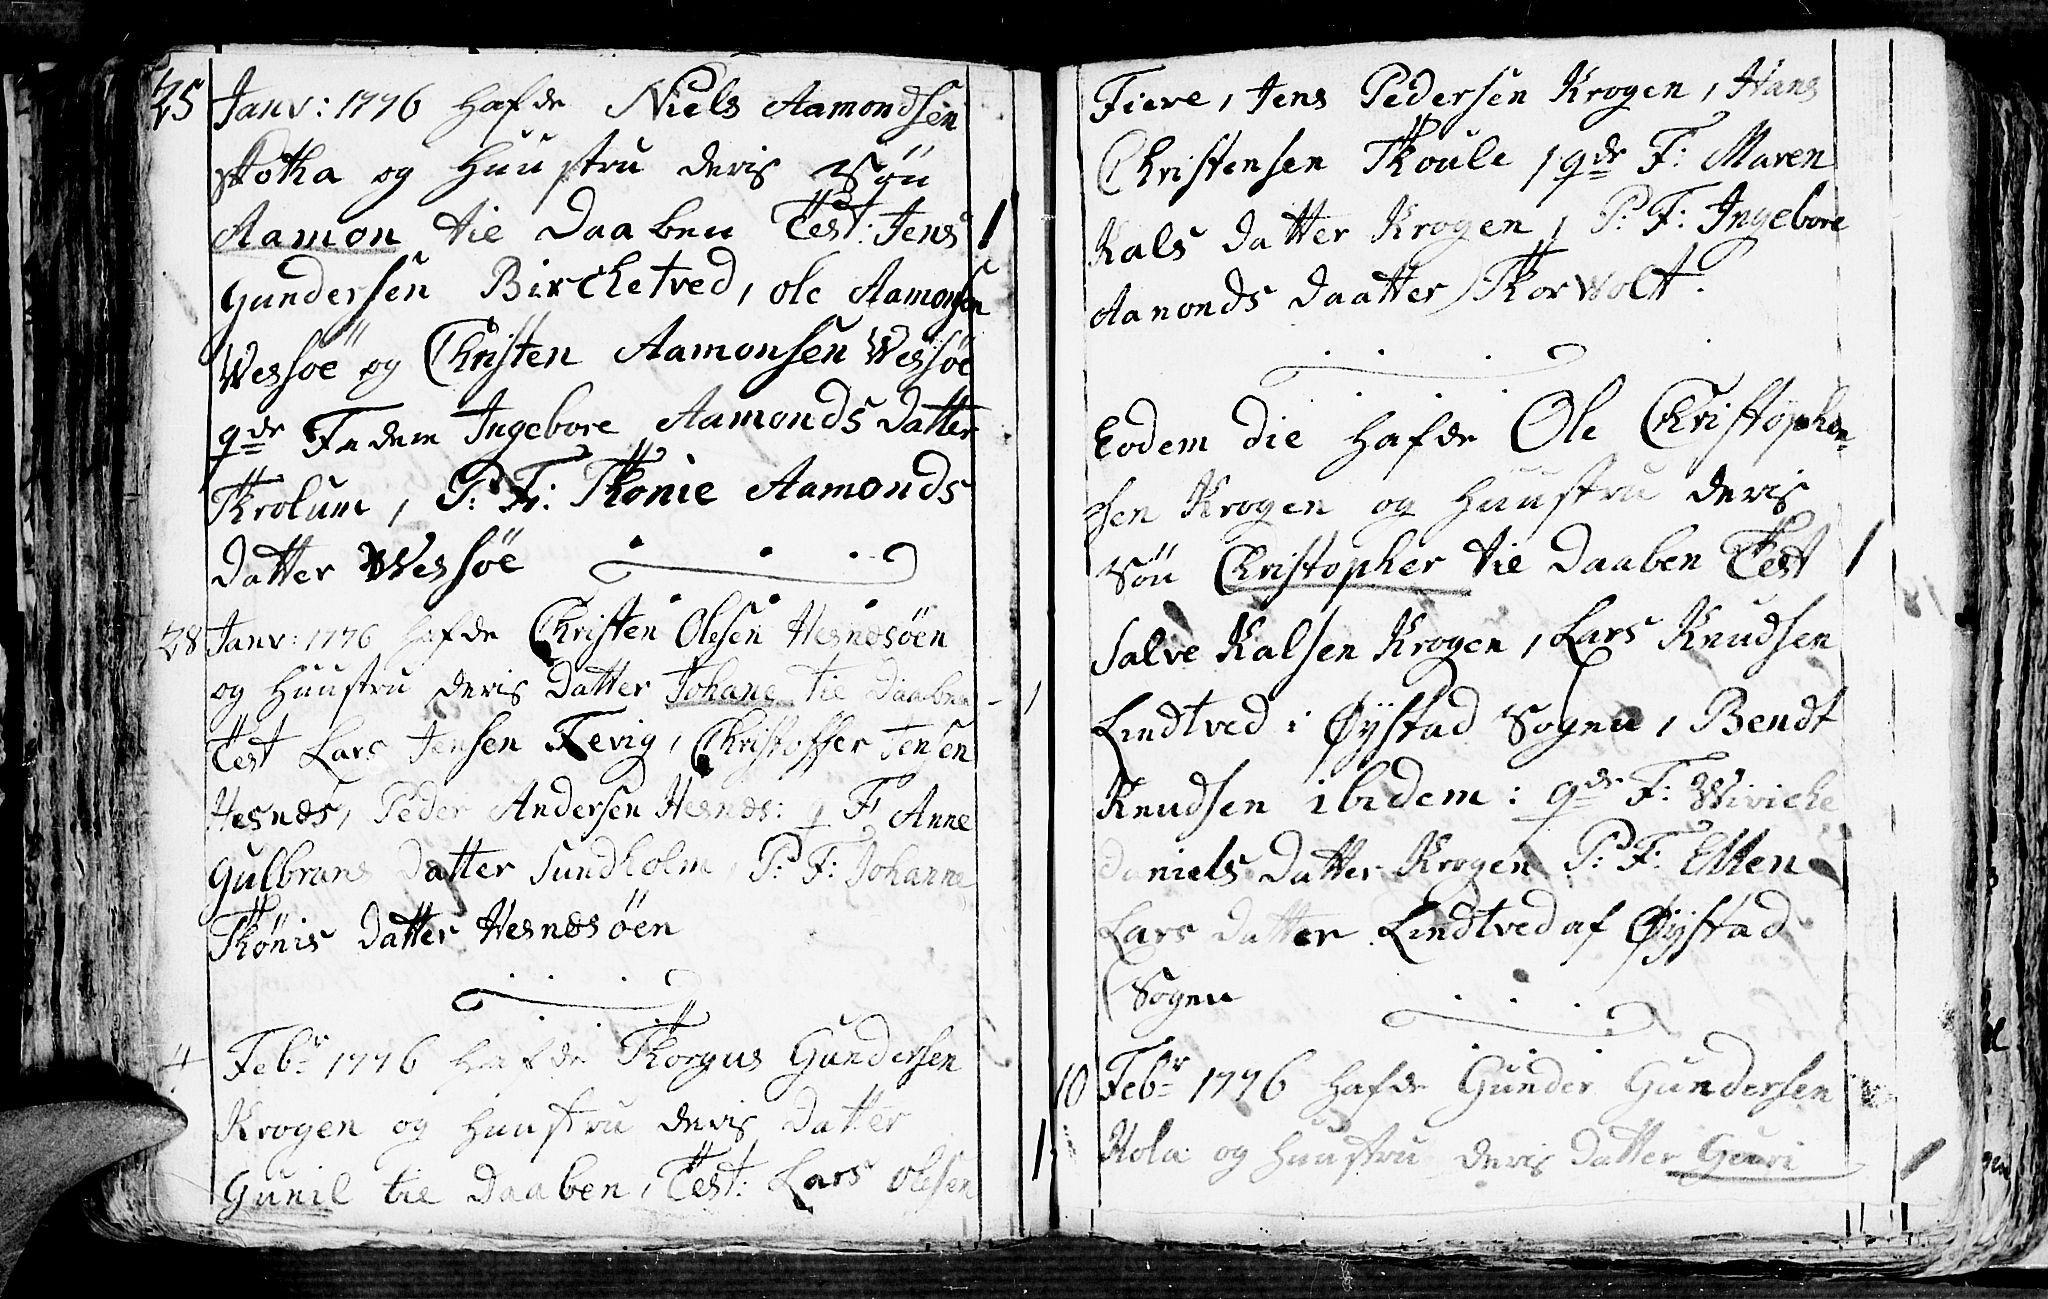 25 Janv: 1776 hafde Niels Aamondsen
skotka og Huustru deris Søn
Aamon tie Daaben Test: Jens 1
Gundersen Birchetved, ole Aamonsen
Wessøe og Christen Aamonsen Wessøe
qde Fadem Ingebore Aamonds datter
Trolum, P: F: Tonie Aamonds
datter Wessøe
28 Janv: 1776 hafde Christen Olesen Hesnesøen
og Huustru deris Datter Johane tie Daaben 1
Test Lars Jensen Fevig, Christoffer Jensen
Hesnes, Peder Andersen Hesnes: q F Anne
Gulbrans datter Sundholm, P: F: Johanne
Tønis datter Hesnesøen
4 Febr 1776 hafde Torgus Gundersen
Krogen og Huustru deris Datter
Gunil tie Daaben, Test: Lars Olesen 1
Fiere, Jens Pedersen Krogen, Hans
Christensen Toule, qde F: Maren
Kals datter Krogen, P: F: Ingebore
Aamonds Daatter Torwolt.
Eodem die hafde Ole Christophen-
sen Krogen og Huustru deris
Søn Christopher tie Daaben Test 1
Salve Kalsen Krogen, Lars Knudsen
Lindtved i Øystad Sogen, Bendt
Knudsen ibidem: qde F: Wiviche
Daniels Datter Krogen P: F: Ellen
Lars datter Lindtved af Øystad
Sogen
10 Febr 1776 hafde Gunder Gundersen
Hola og Huustru deris Datter Guuri 1